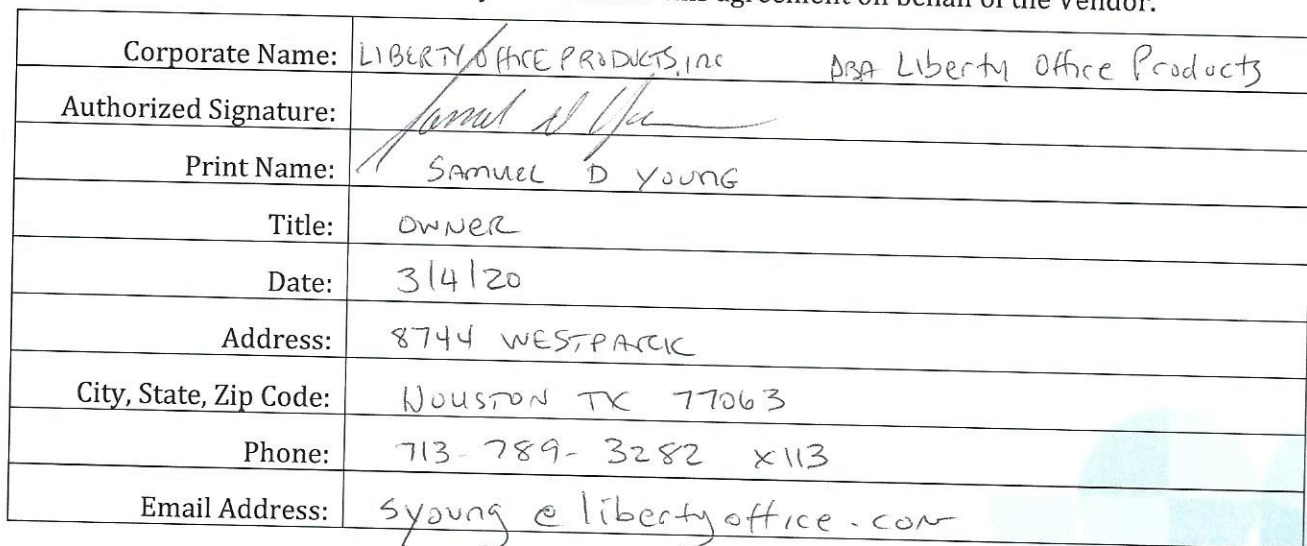 agreement on behalf of the Vendor.
Corporate Name: LIBERTY OFFICE PRODUCTS, INC DBA Liberty Office Products
Authorized Signature: Samuel D
Print Name: SAMUEL D YOUNG
Title: OWNER
Date: 3/4/20
Address: 8744 WESTPARK
City, State, Zip Code: HOUSTON TX 77063
Phone: 713-789-3282 x113
Email Address: syoung@libertyoffice.com